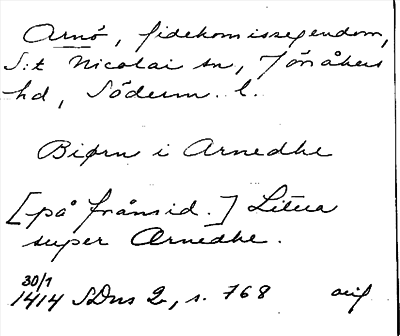 Arnö, fidekomissegendom,
S:t Nicolai sn, Jönåkers
hd, Söderm. l.
Biørn i Arnedhe
[på frånsid.] Litera
super Arnedhe.
30/1
1414 SDns 2, s. 768 avif